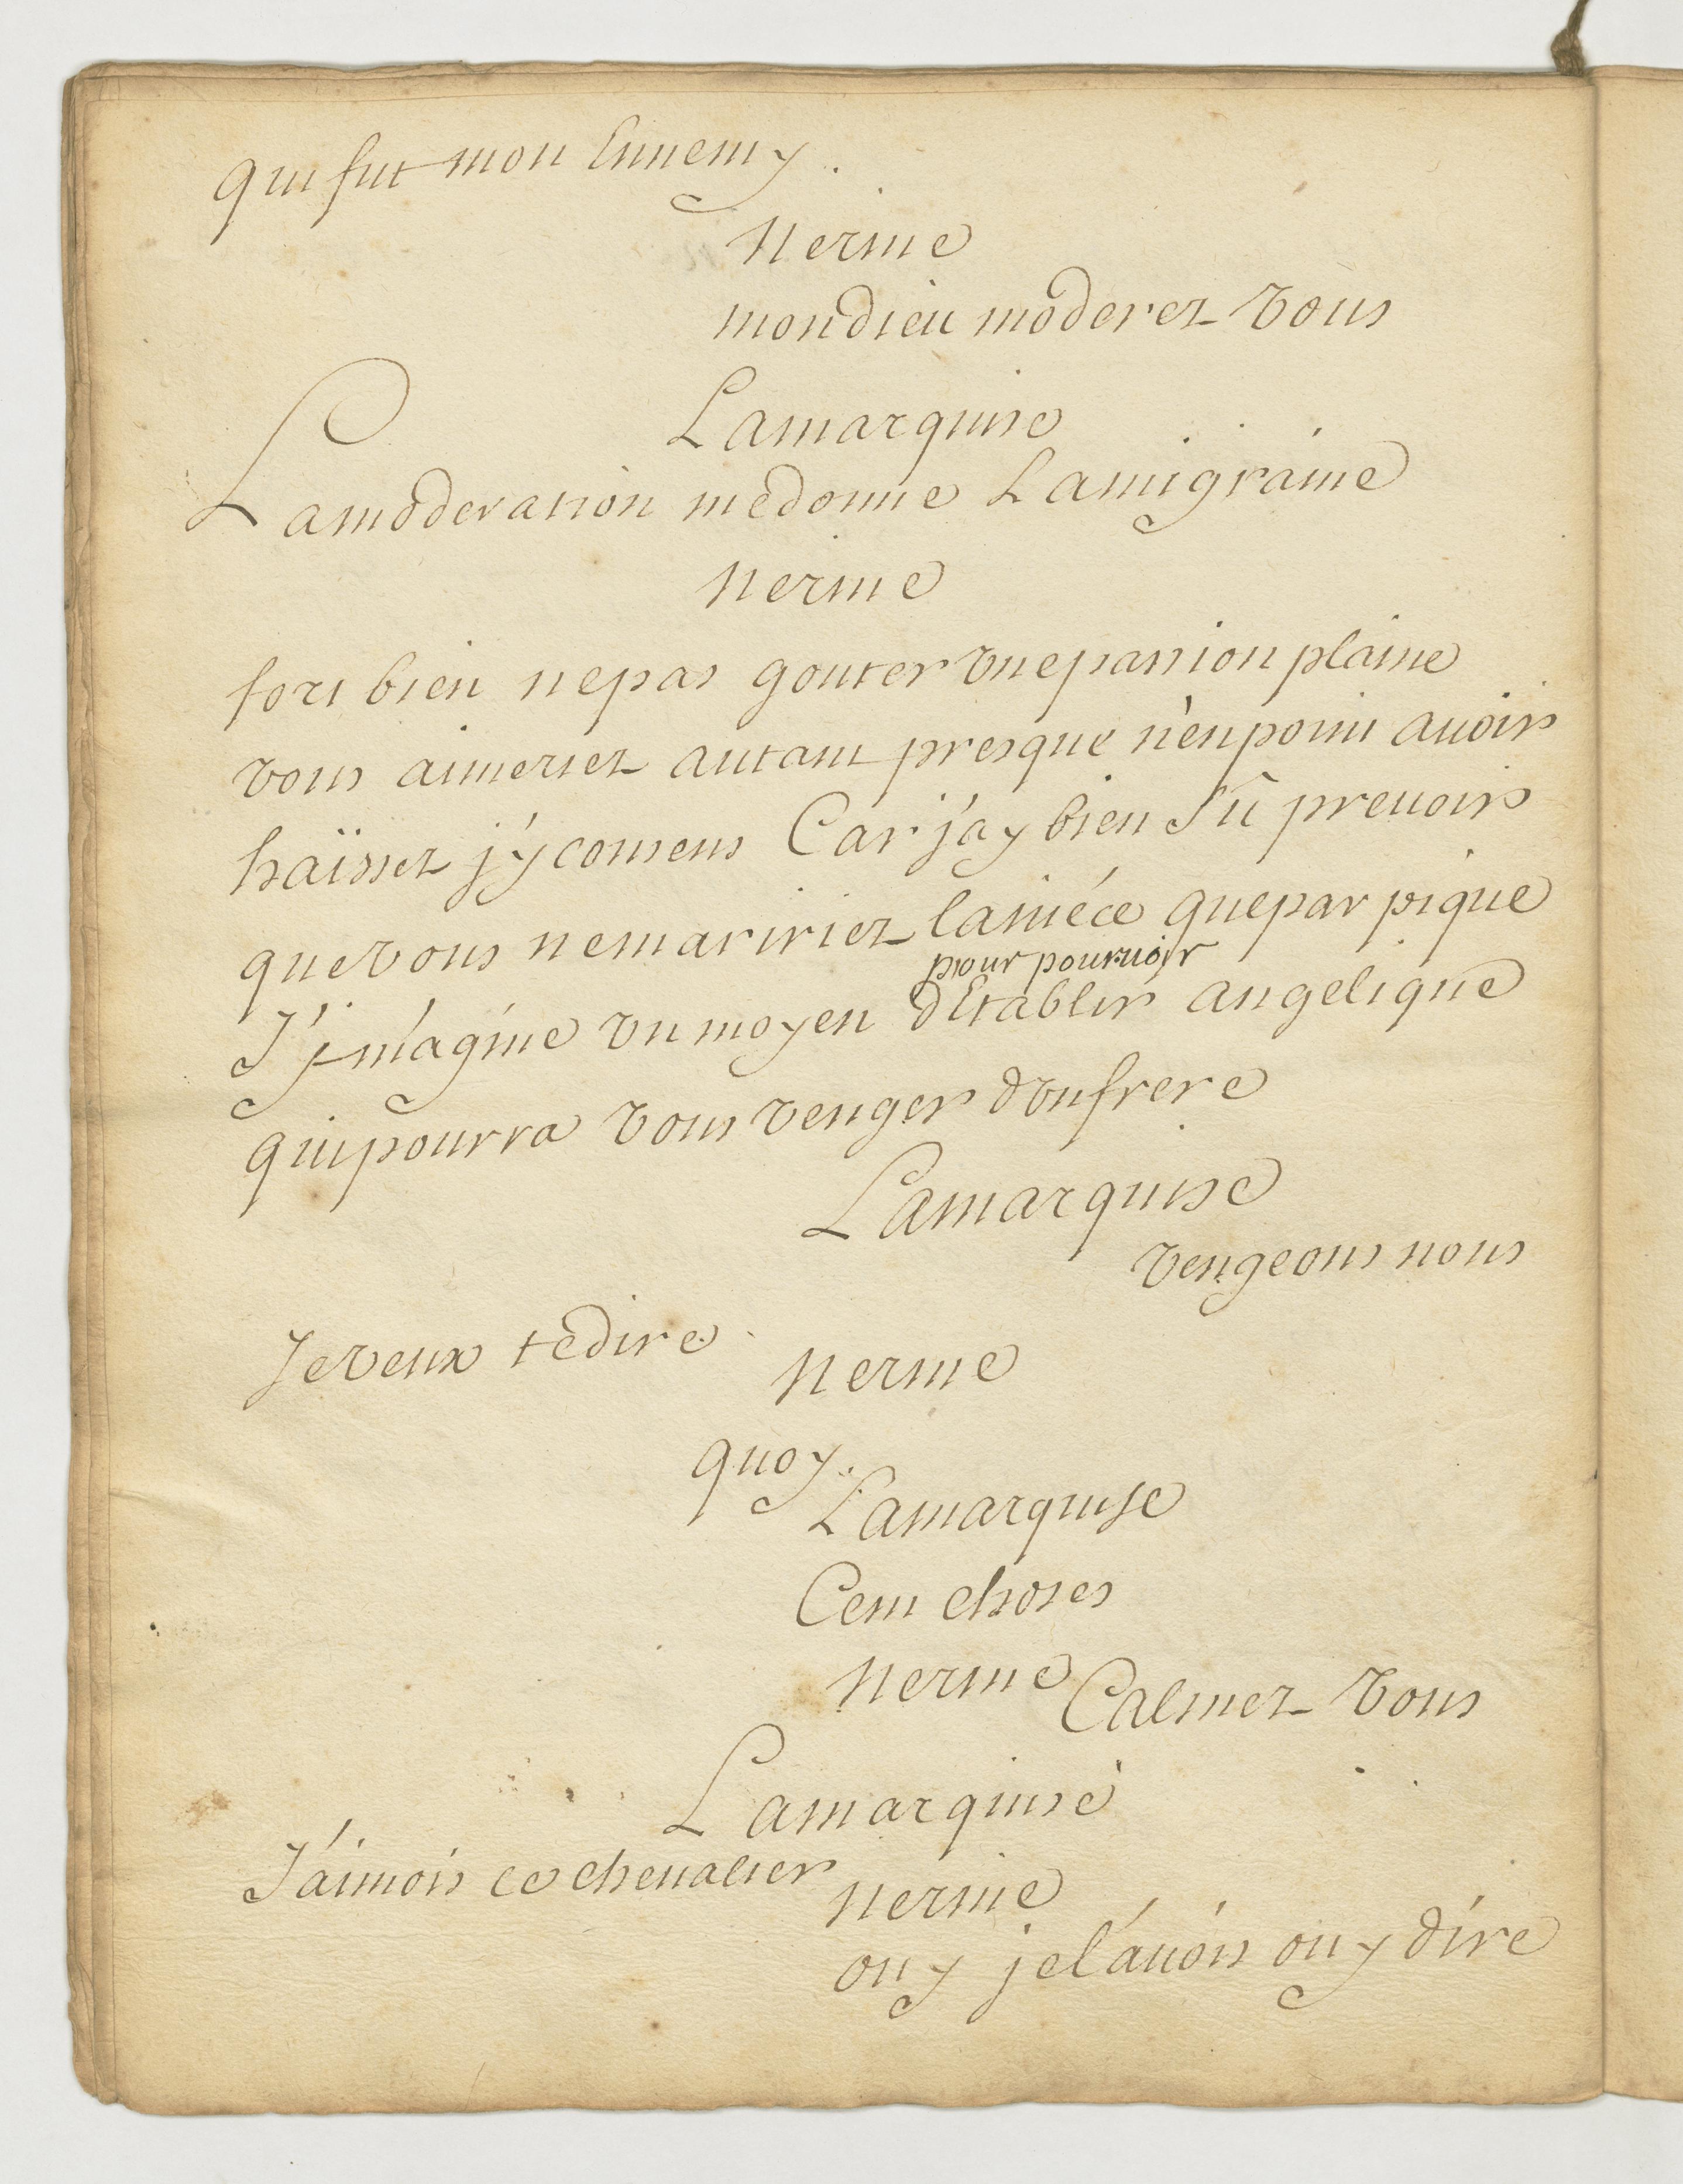 qui fut mon Ennemy.
Nerine
mondieu moderez vous
Lamarquise
Lamoderation medonne Lamigraine
Nerine
fort bien nepas gouter vnepassion plaine
vous aimeriez autant presque n'enpoint auoir
haïssez j'y consens Car j'ay bien Sû preuoir
quevous nemaririez laniéce quepar pique
pour pouruoir
J'jmagine vn moyen dEtablir angelique
quipourra vous venger dvnfrere
Lamarquise
vengeons nous
Jeveux tedire
Nerine
quoy.
Lamarquise
Cent choses
Nerine
Calmez vous
Lamarquise
J'aimois ce cheualier
Nerine
ouy jel'auois ouy dire